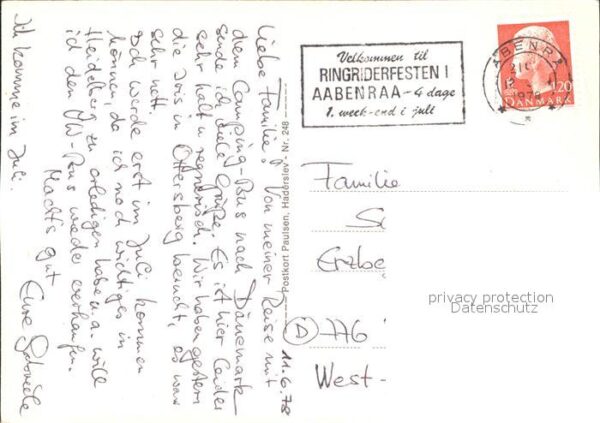 11.6.78
Liebe Familie! Von meiner Reise mit
dem Camping-Bus nach Dänemark
sende ich viele Grüße. Es ist hier leider
sehr kalt u. regnerisch. Wir haben gestern
die Iris in Ottersberg besucht, es war
sehr nett.
Ich werde erst im Juli kommen
können, da ich noch wichtiges in
Heidelberg zu erledigen habe u.a. will
ich den VW-Bus wieder verkaufen.
Machts gut
Eure Gabriele
Ich komme im Juli.
Postkort Paulsen, Haderslev - Nr. 248
Velkommen til
RINGRIDERFESTEN I
AABENRAA - 4 dage
1. week-end i juli
ABENRA
1978
120
DANMARK
Familie
S
Erzbe
D 776
West-
privacy protection
Datenschutz